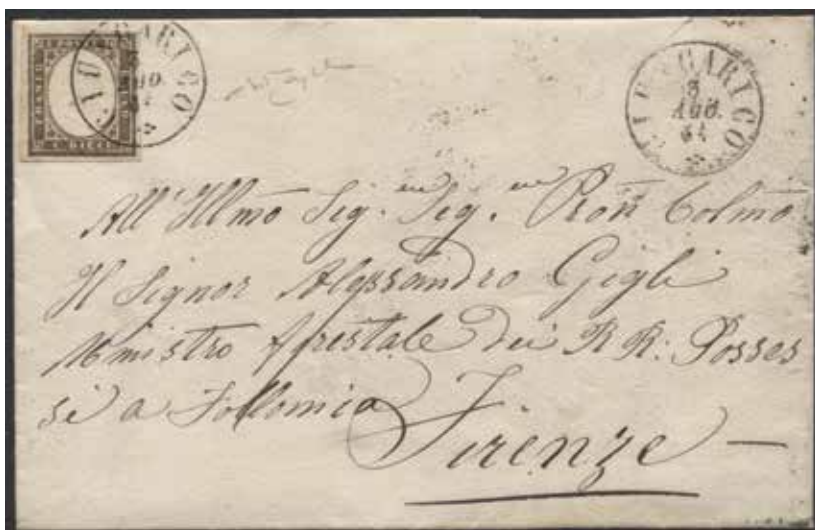 FRANCO
C. DIECI
3
AGO.
61
All' Illmo Sig. Sig. Pron Colmo
Il Signor Alessandro Gigli
Ministro Forestale dei RR: Posses
si a Follonica
Firenze